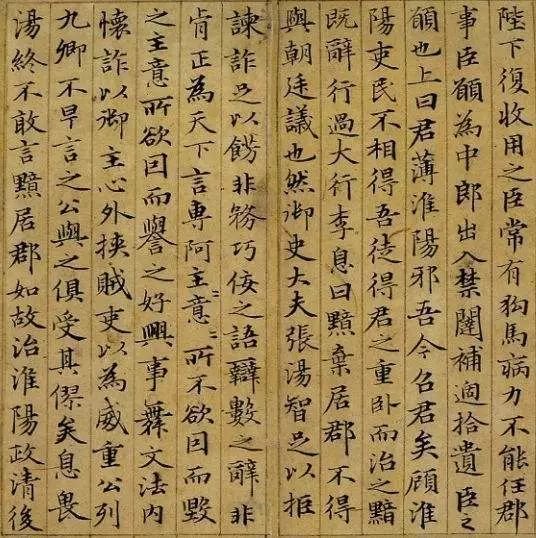 陛下復收用之臣常有狗馬病力不能任郡
事臣願為中郎出入禁闥補過拾遺臣之
願也上曰君薄淮陽邪吾今召君矣顧淮
陽吏民不相得吾徒得君之重卧而治之黯
既辭行過大行李息曰黯棄居郡不得
與朝廷議也然御史大夫張湯智足以拒
諫詐足以餝非務巧佞之語辯數之辭非
肯正為天下言專阿主意〻所不欲因而毀
之主意所欲因而譽之好興事舞文法內
懷詐以御主心外挾賊吏以為威重公列
九卿不早言之公與之俱受其僇矣息畏
湯終不敢言黯居郡如故治淮陽政清後